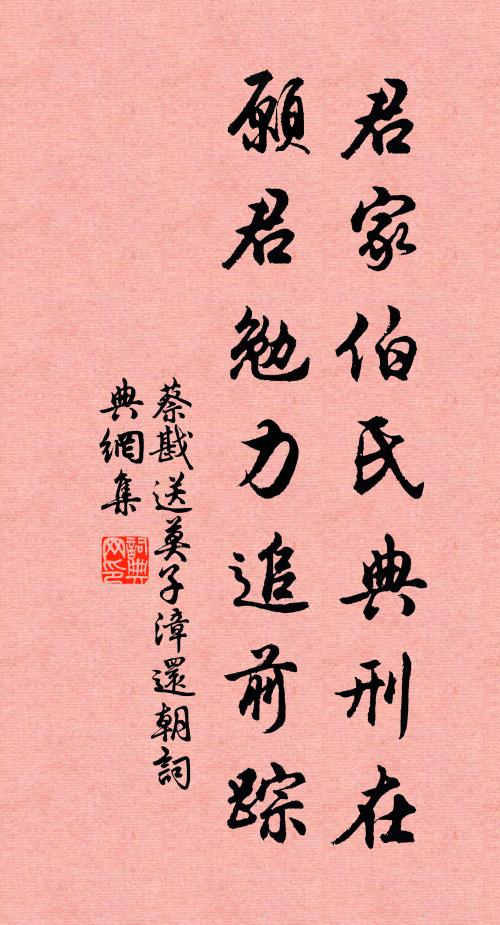 君家伯氏典刑在
願君勉力追前踪
蔡戡送莫子漳還朝詞
典網集
詞典網印